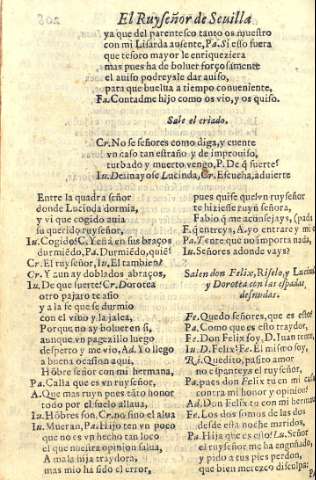 El Ruyseñor de Seuilla
ya que del parentesco tanto os muestro
con mi Lisarda ausente, Pa. Si esso fuera
que tesoro mayor le enriqueziera
mas pues ha de boluer forçosamente
el auiso podreysle dar auiso,
para que buelua a tiempo conueniente,
Fa. Contadme hijo como os vio, y os quiso.
Sale el criado.
Cr. No se señores como diga, y cuente
vn caso tan estraño y de improuiso,
turbado y muerto vengo, P. De q̃ suerte?
In. Desmayose Lucinda, Cr. Escucha, aduierte
Entre la quadra señor
donde Lucinda dormia,
y vi que cogido auia
su querido ruyseñor,
Iu. Cogido? C. Y en sus braços
durmiẽdo, Pa. Durmiẽdo, quiẽ?
Cr. El ruyseñor, Iu. El tambien?
Cr. Y aun ay doblados abraços,
Iu. De que suerte? Cr. Dorotea
otro pajaro te asio
y a la se que se durmio
con el vino y la jalea,
Porque no ay boluer en si,
aunque vn pagezillo luego
desperto y me vio, Ad. Yo llego
a buena ocasion aqui,
Hõbre señor con mi hermana,
Pa. Calla que es vn ruyseñor,
A. Que mas ruyn pues tãto honor
todo por el suelo allana,
Iu. Hõbres son, Cr. no sino el alua
In. Mueran, Pa. Hijo ten vn poco
que no es vn hecho tan loco
el que nuestra opinion salua,
A mala hija traydora,
mas mio ha sido el error,
pues quise que vn ruyseñor
te hiziesse ruyn señora,
Fabio q̃ me aconsejays,
F. q̃ entreys, A. yo entrare y
Pa. Tente que no importa nada,
Iu. Señores adonde vays?
Salen don Felix, Riselo, y Lucinda
y Dorotea con las espadas
desnudas.
Fe. Quedo señores, que es esto?
Pa. Como que es esto traydor,
Fe. Don Felix soy, D. Iuan
Iu. D. Felix? Fe. El mismo soy,
Ri. Quedito, passito amor
no espanteys el ruyseñor,
Pa. pues don Felix tu en mi casa
contra mi honor y opinion?
Ad. Don Felix tu con mi hermana
Fe. Los dos somos de las dos
desde esta noche maridos,
Pa. Hija que es esto? Lu. Señor
el ruyseñor me ha engañado,
y pido a tus pies perdon,
que bien merezco disculpa: